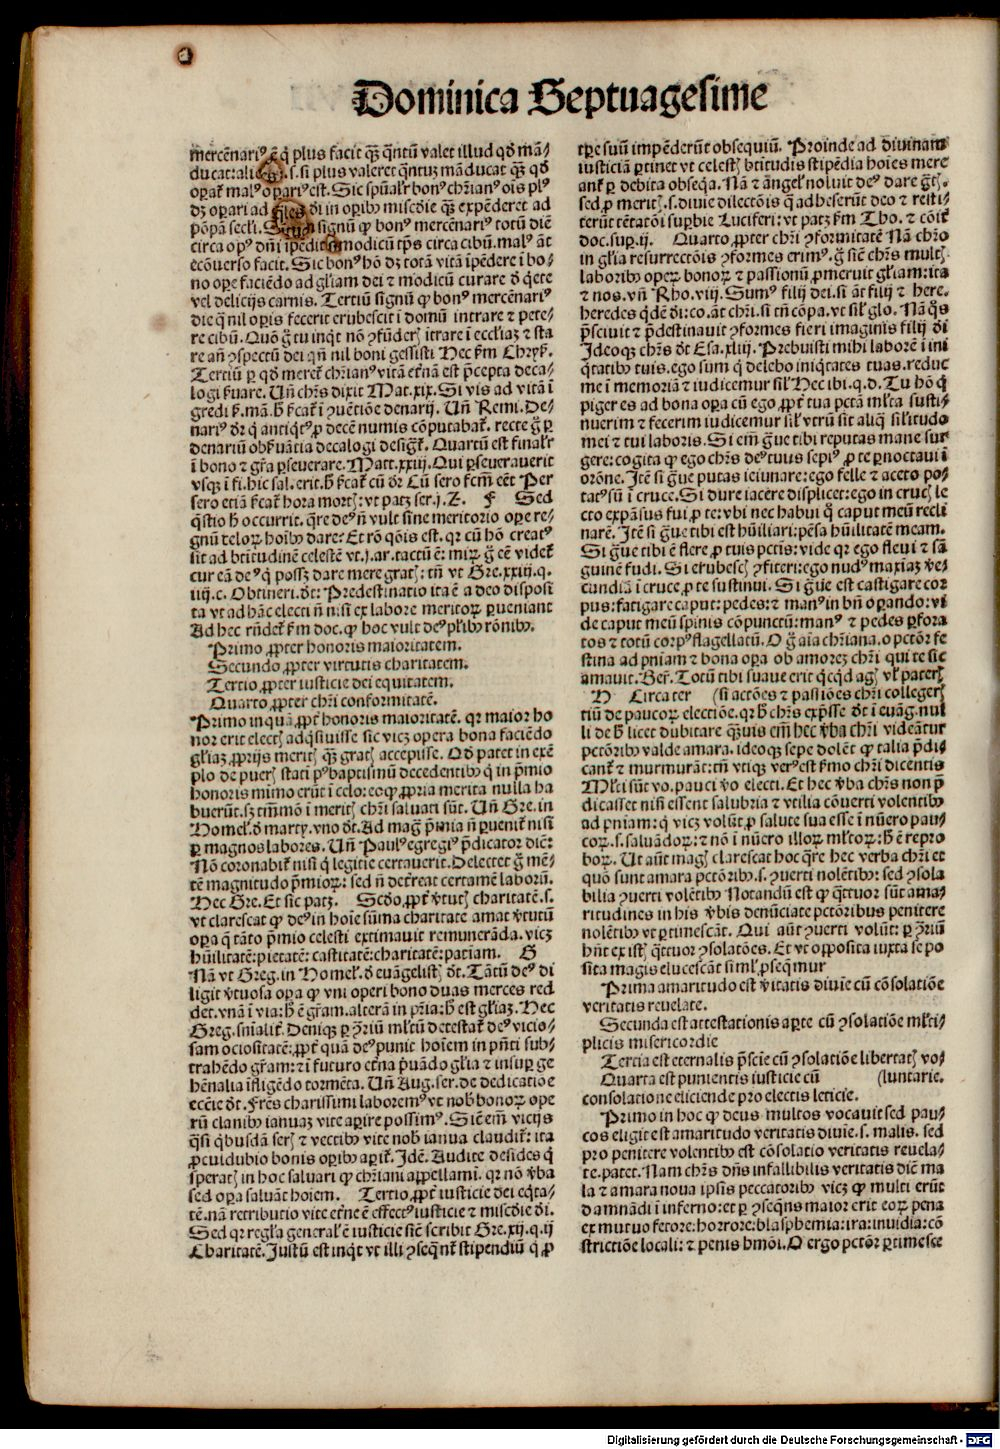 Dominica Septuagesime
mercēnariꝰ ē q̇ plus facit qȝ q̄ntū valet illud qd̓ mā⸗
ducat: .s. si plus valeret q̄ntuȝ māducat qȝ qd̓
oꝑat̄ malꝰ oꝑariꝰ est. Sic spūal'r bonꝰ chr̄ianꝰ oīs plꝰ
dȝ oꝑari ad di in oꝑibꝰ miscd̓ie qȝ expēderet ad
pōpā secl̄i. signū ꝙ bonꝰ mercēnariꝰ totū diē
circa opꝰ dn̄i īpēdit modicū tp̄s circa cibū. malꝰ āt
ecōuerso facit. Sic bonꝰ hō dȝ totā vitā īpēdere ī bo⸗
no oꝑe faciēdo ad gl'iam dei ⁊ modicū curare d̓ q̄ete
vel delicijs carnis. Tertiū signū ꝙ bonꝰ mercēnariꝰ
die q̄ nil oꝑis fecerit erubescit ī domū intrare ⁊ pete⸗
re cibū. Quō ḡ tu inqt̄ nō ꝯfūderꝭ itrare ī eccl'iaȝ ⁊ sta
re añ ꝯspectū dei qn̄ nil boni gessisti Hec ẜm Chrysͭ.
Tertiū ꝑ qd̓ meret̄ chr̄ianꝰ vitā et̄nā est p̄cepta deca⸗
logi ẜuare. Uñ chr̄s dixit Mat. xix. Si vis ad vitā ī
gredi ẜ. mā. h̓ ẜcat̄ ī ꝯuētiōe denarij. Uñ Remi. De⸗
nariꝰ dr̄ q̄ antiqtꝰ ꝓ decē numis cōputabat̄. recte ḡ ꝑ
denariū obẜuātia decalogi desigt̄. Quartū est final'r
ī bono ⁊ gr̄a ꝑseuerare. Matt. xxiij. Qui ꝑseuerauerit
vsqȝ ī fi. hic sal. erit. h̓ ẜcat̄ cū dr̄ Cū sero fcm̄ eēt Per
sero etiā ẜcat̄ hora mortꝭ: vt patȝ ser. j. Z. F Sed
q̄stio h̓ occurrit. q̄re deꝰ ñ vult sine meritorio oꝑe re⸗
gnū celoꝝ hoībꝰ dare? Et rō q̄onis est. qr cū hō creatꝰ
sit ad btītudinē celestē vt. j. ar. tactū ē: miꝝ ḡ eē videt̄
cur eā deꝰ q̄ possȝ dare mere gratꝭ: tn̄ vt Gre. xxiij. q.
iiij. c. Obtineri. dt̄: Predestinatio ita ē a deo disposi
ta vt ad hāc electi ñ nisi ex labore meritoꝝ ꝑueniant
Ad hec rn̄det̄ ẜm doc. ꝙ hoc vult deꝰ pl'ibꝰ rōnibꝰ.
Primo ꝓpter honoris maioritatem.
Secundo ꝓpter virtutis charitatem.
Tertio ꝓpter iusticie dei equitatem.
Quarto ꝓpter chr̄i conformitatē.
Primo inquā ꝓpt̄ honoris maioritatē. qr maior ho
nor erit electꝭ adq̄siuisse sic̄ vicȝ opera bona faciēdo
gl'iaȝ ꝓprijs meritꝭ qȝ gratꝭ accepisse. Qd̓ patet in exē
plo de puerꝭ statī pꝰ baptismū decedentibꝰ q̇ in p̄mio
honoris mimo erūt ī celo: eoꝙ ꝓpria merita nulla ha
buerūt. sȝ tm̄mō ī meritꝭ chr̄i saluati sūt. Uñ Gre. in
Homel̄. d̓ marty. vno dt̄. Ad mag̊ p̄mia ñ ꝑuenit̄ nisi
ꝑ magnos labores. Uñ Paulꝰ egregiꝰ p̄dicator diē:
Nō coronabit̄ nisi q̇ legitie certauerit. Delectet ḡ mē⸗
tē magnitudo p̄mioꝝ: sed ñ det̄reat certamē laborū.
Hec Gre. Et sic patȝ. Scd̓o ꝓpt̄ v̄tutꝭ charitatē. s.
vt clarescat ꝙ deꝰ in hoīe sūma charitate amat v̄tutū
oꝑa q̄ tāto p̄mio celesti extimauit remunerāda. vicȝ
hūilitatē: pietatē: castitatē: charitatē: patiam. G
Nā vt Greg. in Homel̄. d̓ euāgelistꝭ dt̄. Tātū deꝰ di
ligit v̄tuosa oꝑa ꝙ vni operi bono duas merces red
det. vnā ī via: h̓ ē gr̄am. alterā in pr̄ia: h̓ est gl'iaȝ. Hec
Greg. sn̄ialit̄. Deniqȝ ꝑ ꝯriū ml'tū detestat̄ deꝰ vicio⸗
sam ociositatē: ꝓpt̄ quā deꝰ punit hoīem in pn̄ti sub⸗
trahēdo gr̄am: ⁊ ī futuro et̄na p̄uādo gl'ia ⁊ insuꝑ ge
hēnalia īfligēdo tormēta. Uñ Aug. ser. de dedicatioe
ecc̄ie dt̄. Fr̄es charissimi laboremꝰ vt nobꝭ bonoꝝ ope
rū clanibꝰ ianuaȝ vite aꝑire possimꝰ. Sic̄ em̄ vicijs
q̄si q̇busdā serꝭ ⁊ vectibꝰ vite nobꝭ ianua claudit̄: ita
ꝓcuidubio bonis oꝑibꝰ aꝑit̄. Idē. Audite desides q̇
speratꝭ in hoc saluari ꝙ chr̄iani appellami. qr nō v̄ba
sed oꝑa saluāt hoīem. Tertio ꝓpt̄ iusticie dei eq̇ta⸗
tē. nā retributio vite et̄ne ē effectꝰ iusticie ⁊ miscd̓ie di.
Sed qr regl'a general̄ ē iusticie sic̄ scribit Gre. xij. q. ij
Charitatē. Justū est inqt̄ vt illi ꝯseqn̄t̄ stipendiū q̇ ꝓ
tꝑe suū impēderūt obsequiū. Proinde ad diuinam
iusticiā ꝑtinet vt celestꝭ btītudis stipēdia hoīes mere
ant̄ ꝑ debita obseqa. Nā ⁊ āngel̄ noluit deꝰ dare gr̄tꝭ.
sed ꝓ meritꝭ. s. diuie dilectōis q̄ adheserūt deo ⁊ resti⸗
terūt tētatōi suꝑbie Luciferi: vt patȝ ẜm Tho. ⁊ cōīt̄
doc. suꝑ. ij. Quarto ꝓpter chr̄i ꝯformitatē Nā chr̄o
in gl'ia resurrectōis ꝯformes erimꝰ. ḡ sic̄ chr̄s multꝭ
laboribꝰ operꝝ bonoꝝ ⁊ passionū ꝓmeruit gl'iam: ita
⁊ nos. vñ Rho. viij. Sumꝰ filij dei. si āt filij ⁊ here.
heredes q̇dē di: co. āt chr̄i. si tn̄ cōpa. vt sil̄ glo. Nā q̊s
p̄sciuit ⁊ p̄destinauit ꝯformes fieri imaginis filij di
Ideoqȝ chr̄s dt̄ Esa. xliij. Prebuisti mihi laborē ī ini
q̇tatibꝰ tuis. ego sum q̇ delebo iniqtates tuas. reduc
me ī memoriā ⁊ iudicemur sil̄ Hec ibi. q. d. Tu hō q̇
piger es ad bona oꝑa cū ego ꝓpt̄ tua pctā ml'ta susti⸗
nuerim ⁊ fecerim iudicemur sil̄ vtrū sit aliq̄ sil'itudo
mei ⁊ tui laboris. Si em̄ gͣue tibi reputas mane sur
gere: cogita ꝙ ego chr̄s deꝰ tuus sepiꝰ ꝓ te ꝑnoctaui ī
orōne. Itē si gͣue putas ieiunare: ego felle ⁊ aceto po⸗
tatꝰ sū ī cruce. Si dure iacere displicet: ego in crucꝭ le
cto expāsus fui ꝓ te: vbi nec habui q̇ caput meū recli
narē. Itē si gͣue tibi est hūiliari: pēsa hūilitatē meam.
Si gͣue tibi ē flere ꝓ tuis pctīs: vide qr ego fleui ⁊ sā
guinē fudi. Si erubescꝭ ꝯfiteri: ego nudꝰ maxiaȝ ve⸗
cundiā ī cruce ꝓ te sustinui. Si gͣue est castigare cor
pus: fatigare caput: pedes: ⁊ manꝰ in bn̄ oꝑando: vi
de caput meū spinis cōpunctū: manꝰ ⁊ pedes ꝑfora
tos ⁊ totū corpꝰ flagellatū. O ḡ aīa chr̄iana. o pctōr fe
stina ad pn̄iam ⁊ bona oꝑa ob amoreȝ chr̄i qui te sic
amauit. Ber̄. Totū tibi suaue erit qcqd agꝭ vl̄ paterꝭ
H Circa ter (si actōes ⁊ pasiōes chr̄i collegerꝭ
tiū de paucoꝝ electiōe. qr h̓ chr̄s exp̄sse dt̄ ī euāg. nul
li de h̓ licet dubitare qȝuis em̄ hec v̄ba chr̄i videātur
pctōribꝰ valde amara. ideoqȝ sepe dolēt ꝙ talia p̄di⸗
cant̄ ⁊ murmurāt: tn̄ vtiqȝ verꝰ est ẜmo chr̄i dicentis
Ml'ti sūt vo. pauci v̄o electi. Et hec v̄ba chr̄s non p̄
dicasset nisi essent salubria ⁊ vtilia cōuerti volentibꝰ
ad pn̄iam: q̇ vicȝ volūt ꝓ salute sua esse ī nūero pau⸗
coꝝ. s. saluādoꝝ: ⁊ nō ī nūero illoꝝ ml'toꝝ: h̓ ē repro
boꝝ. Ut aūt magꝭ clarescat hoc q̄re hec verba chr̄i et
quō sunt amara pctōribꝰ. s. ꝯuerti nolētibꝰ: sed ꝯsola
bilia ꝯuerti volētibꝰ Notandū est ꝙ q̄ttuor sūt ama⸗
ritudines in his v̄bis denūciate pctōribus penitere
nolētibꝰ vt ꝑtimescāt. Qui aūt ꝯuerti volūt: ꝑ ꝯriū
hn̄t ex istꝭ q̄ttuor ꝯsolatōes. Et vt opposita iuxta se po
sita magis elucescāt siml̄ ꝓseqmur
Prima amaritudo est v̄itatis diuīe cū cōsolatiōe
veritatis reuelate.
Secunda est attestationis aꝑte cū ꝯsolatiōe ml'ti⸗
plicis misericordie
Tertia est eternalis p̄scīe cū ꝯsolatiōe libertatꝭ vo⸗
Quarta est punientis iusticie cū (luntarie.
consolatione eliciende pro electis leticie.
Primo in hoc ꝙ deus multos vocauit sed pau⸗
cos eligit est amaritudo veritatis diuīe. s. malis. sed
pro penitere volentibꝰ est cōsolatio veritatis reuela⸗
te. patet. Nam chr̄s dn̄s infallibilis veritatis diē ma
la ⁊ amara noua ipsis peccatoribꝰ vicȝ ꝙ multi erūt
damnādi ī inferno: et ꝑ ꝯseqn̄s maior erit eoꝝ pena
ex mutuo fetore: horrore: blasphemia: ira: inuidia: cō
strictiōe locali: ⁊ penis hmōi. O ergo pctōr ꝑtimesce
Digitalisierung gefördert durch die Deutsche Forschungsgemeinschaft - DFG